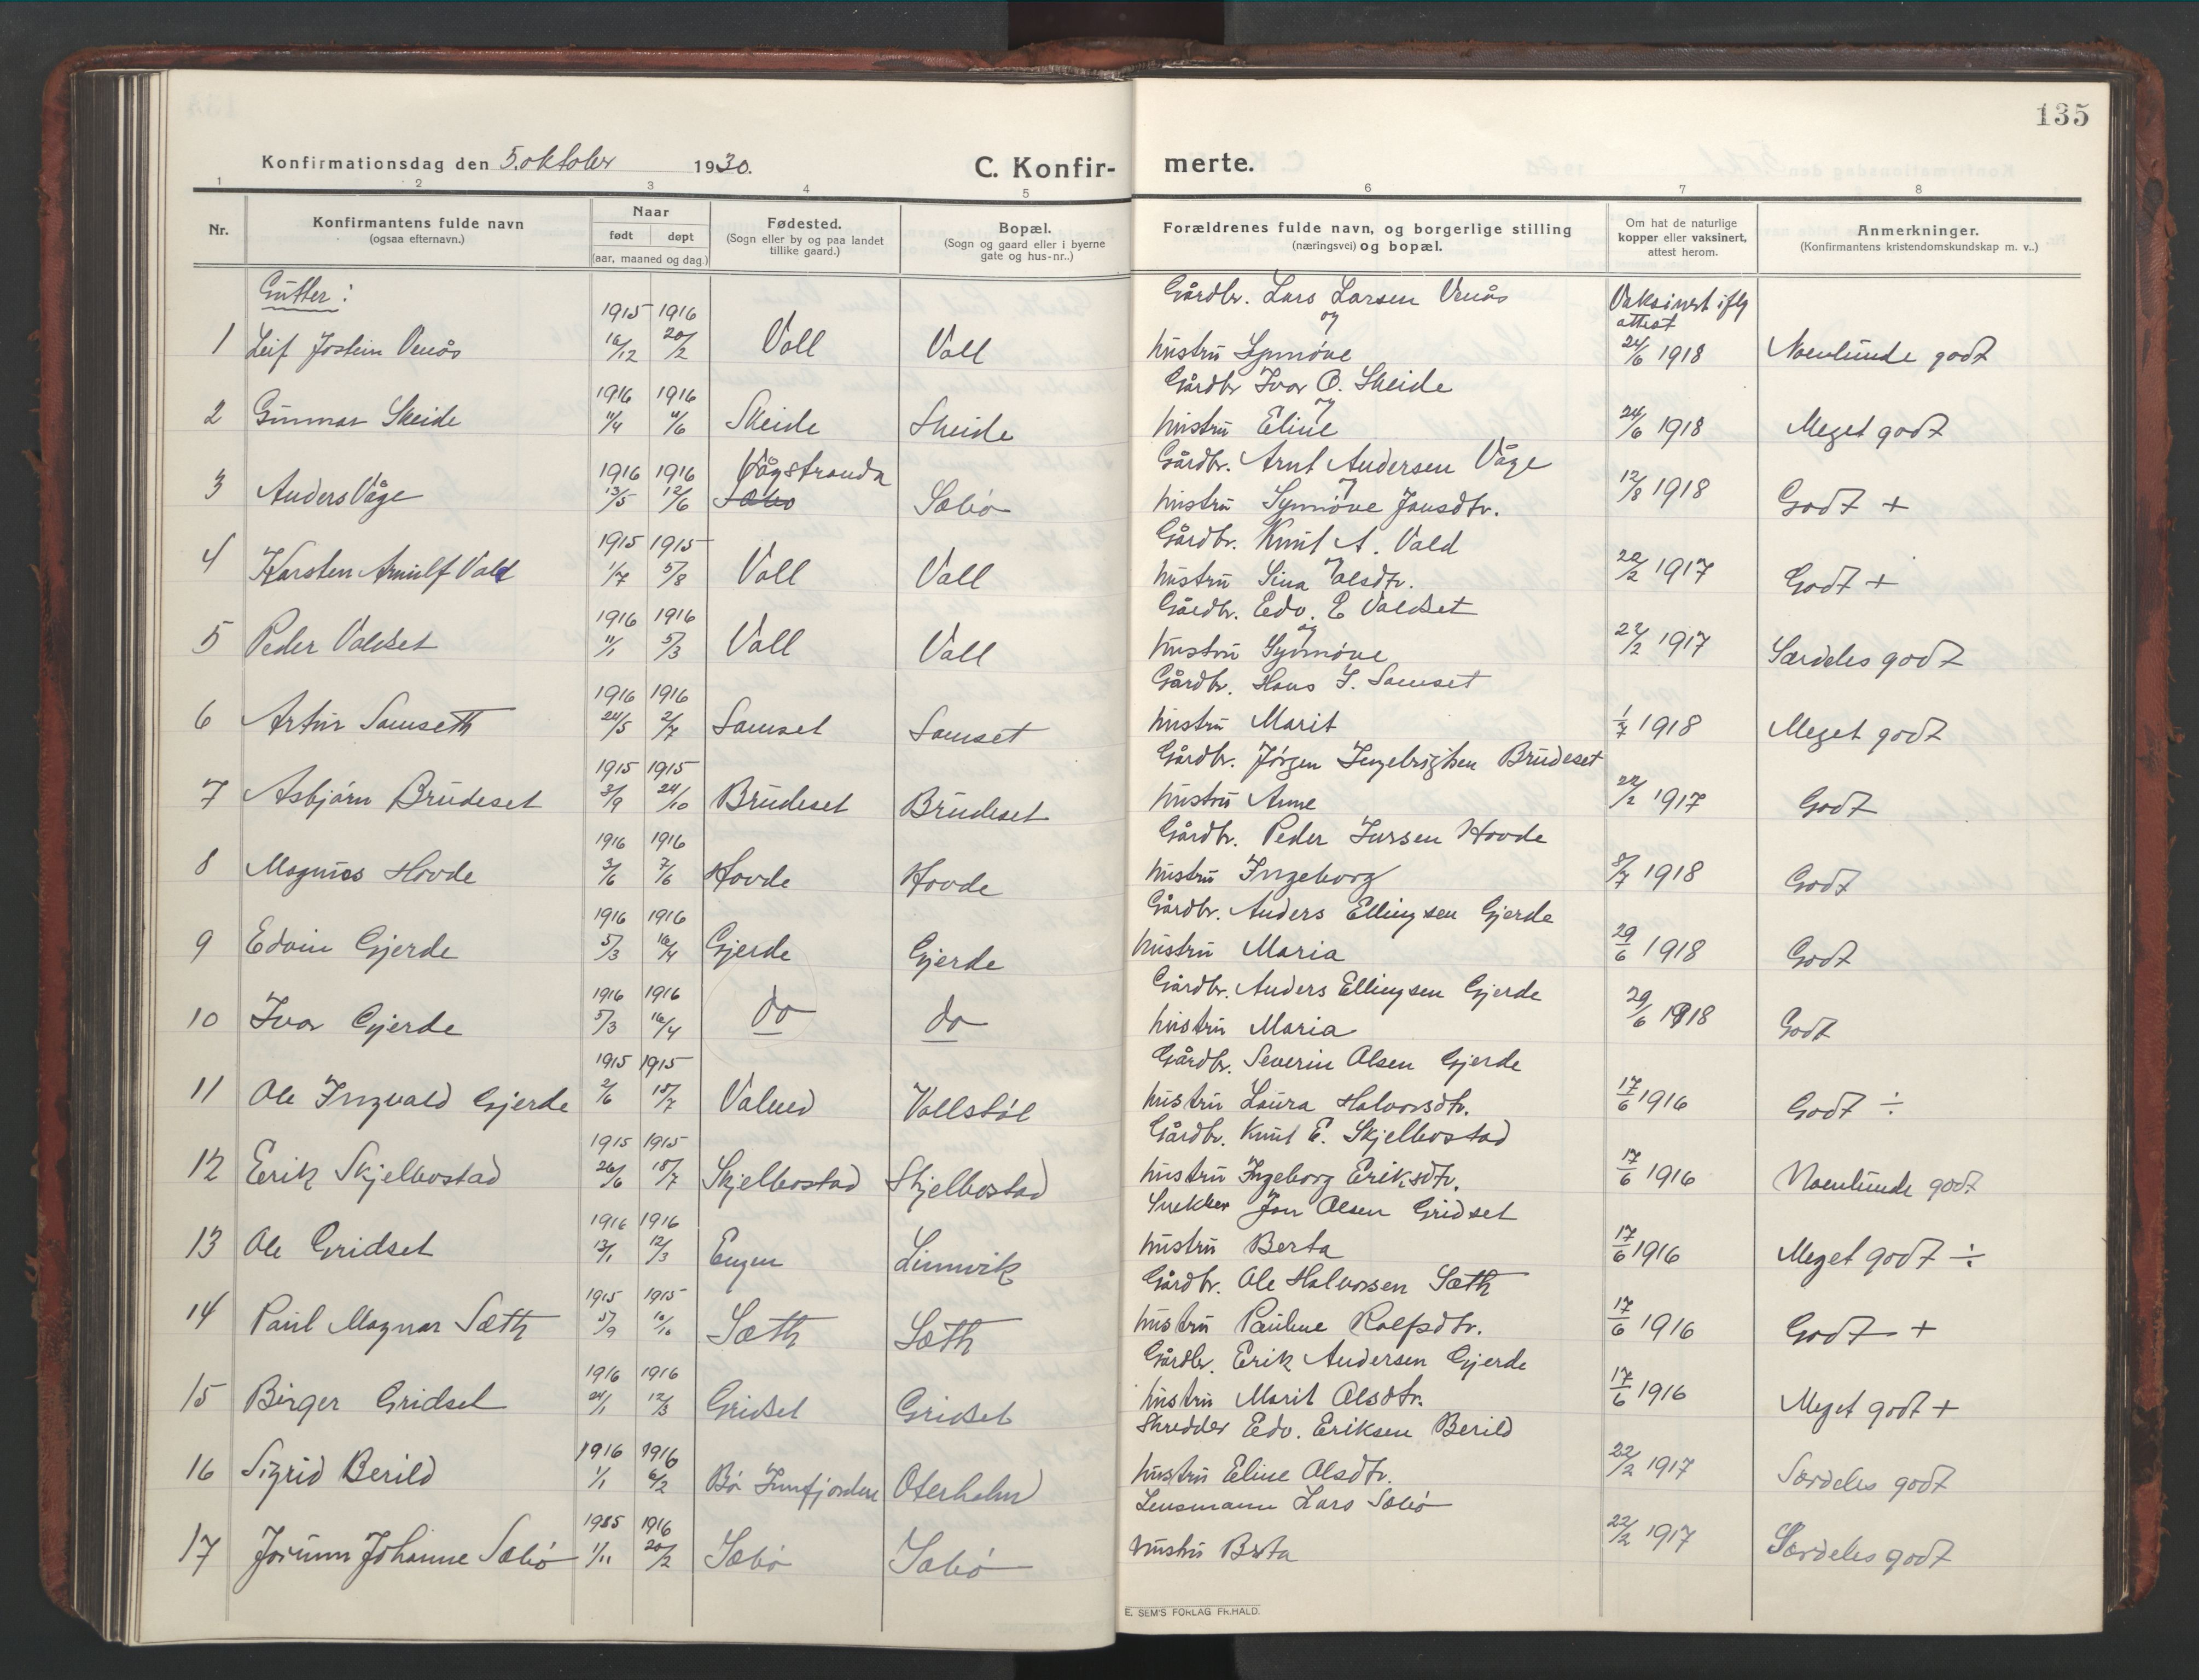 135
Konfirmationsdag den 5. oktober 1930.
C. Konfir-merte.
1 2 3 4 5 6 7 8
Nr.
Konfirmantens fulde navn
(ogsaa efternavn.)
Naar
født døpt
(aar, maaned og dag.)
Fødested.
(Sogn eller by og paa landet
tillike gaard.)
Bopæl.
(Sogn og gaard eller i byerne
gate og hus-nr..)
Forældrenes fulde navn, og borgerlige stilling
(næringsvei) og bopæl.
Om hat de naturlige
kopper eller vaksinert,
attest herom.
Anmerkninger.
(Konfirmantens kristendomskundskap m. v..)
Gutter:
Gårdbr. Lars Larsen Venås
Vaksinert iflg
1915 1916 og attest
1 Leif Jostein Venås 16/12 20/2 Voll Voll hustru Synnøve 24/6 1918 Noenlunde godt
1916 1916 Gårdbr Ivar O. Skeide
og
2 Gunnar Skeide 11/4 4/6 Skeide Skeide hustru Eline 24/6 1918 Meget godt
1916 1916 Vågstranda Gårdbr. Arnt Andersen Våge
og
3 Anders Våge 13/5 12/6 Sæbø Sæbø hustru Synnøve Jansdtr. 12/8 1918 Godt +
1915 1915 Gårdbr. Knut A. Vald
4 Karsten Arnulf Vald 1/7 5/8 Voll Voll hustru Sina Olsdtr. 22/2 1917 Godt +
1916 1916 Gårdbr. Edv. E Valdset
og
5 Peder Valdset 11/1 5/3 Voll Voll hustru Synnøve 22/2 1917 Særdeles godt
1916 1916 Gårdbr. Hans J. Samset
6 Artur Samseth 24/5 2/7 Samset Samset hustru Marit 1/7 1918 Meget godt
1915 1915 Gårdbr. Jørgen Ingebrigtsen Brudeset
7 Asbjørn Brudeset 3/9 24/10 Brudeset Brudeset hustru Anne 22/2 1917 Godt
1916 1916 Gårdbr. Peder Iversen Hovde
8 Magnus Hovde 3/6 7/6 Hovde Hovde hustru Ingeborg 8/7 1918 Godt
1916 1916 Gårdbr. Anders Ellingsen Gjerde
9 Edvin Gjerde 5/3 16/4 Gjerde Gjerde hustru Maria 29/6 1918 Godt
1916 1916 Gårdbr. Anders Ellingsen Gjerde
10 Ivar Gjerde 5/3 16/4 do do hustru Maria 29/6 1918 Godt
1915 1915 Gårdbr. Severin Olsen Gjerde
11 Ole Ingvald Gjerde 2/6 18/7 Vollstøl hustru Laura Halvorsdtr. 17/6 1916 Godt ÷
1915 1915 Gårdbr. Knut E. Skjelbostad
12 Erik Skjelbostad 26/6 18/7 Skjelbostad Skjelbostad hustru Ingeborg Eriksdtr. 17/6 1916 Noenlunde godt
1916 1916 Snekker Jon Olsen Gridset
13 Ole Gridset 13/1 12/3 Engen Linnvik hustru Berta 17/6 1916 Meget godt ÷
1915 1915 Gårdbr. Ole Halvorsen Sæth
14 Paul Magnar Sæth 5/9 10/10 Sæth Sæth hustru Pauline Rolfsdtr. 17/6 1916 Godt +
1916 1916 Gårdbr. Erik Andersen Gjerde
15 Birger Gridset 24/1 12/3 Gridset Gridset hustru Marit Olsdtr. 17/6 1916 Meget godt +
1916 1916 Skredder Edv. Eriksen Berild
16 Sigrid Berild 1/1 6/2 Bø Innfjorden Oterholm hustru Eline Olsdtr. 22/2 1917 Særdeles godt
1915 1916 Lensmann Lars Sæbø
17 Jorunn Johanne Sæbø 1/11 20/2 Sæbø Sæbø hustru Berta 22/2 1917 Særdeles godt
E. SEM'S FORLAG FR.HALD.